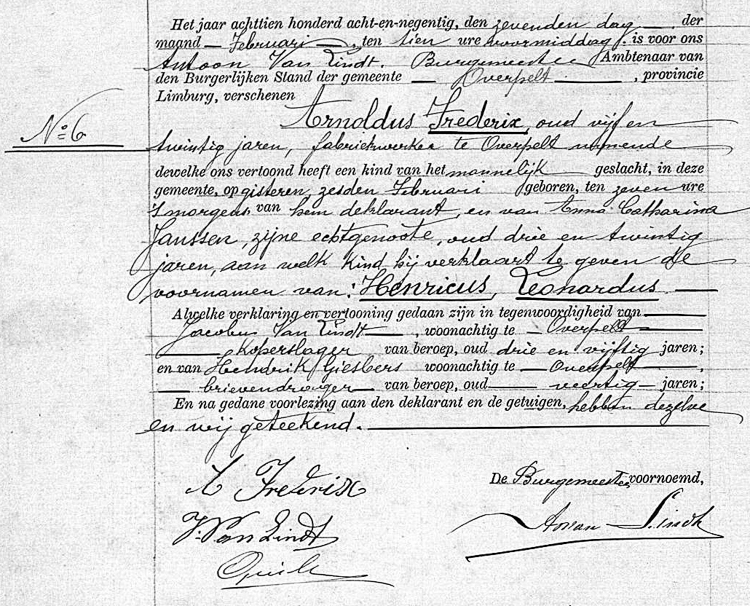 Het jaar achttien honderd acht-en-negentig, den zevenden dag der
maand Februari, ten tien ure voormiddag, is voor ons
Antoon Van Lindt, Burgemeester Ambtenaar van
den Burgerlijken Stand der gemeente Overpelt, provincie
Limburg, verschenen
No 6
Arnoldus Frederix, oud vijf en
twintig jaren, fabriekwerker te Overpelt wonende
dewelke ons vertoond heeft een kind van het mannelijk geslacht, in deze
gemeente, op gisteren, zesden Februari geboren, ten zeven ure
's morgens van hem deklarant, en van Anna Catharina
Janssen, zijne echtgenoote, oud drie en twintig
jaren, aan welk kind hij verklaart te geven de
voornamen van: Henricus, Leonardus
Alwelke verklaring en vertooning gedaan zijn in tegenwoordigheid van
Jacobus Van Lindt, woonachtig te Overpelt
koperslager van beroep, oud drie en vijftig jaren;
en van Hendrik Giesbers woonachtig te Overpelt,
brievendrager van beroep, oud veertig jaren;
En na gedane voorlezing aan den deklarant en de getuigen, hebben dezelve
en wij geteekend.
A Frederix
De Burgemeester voornoemd,
J. Van Lindt